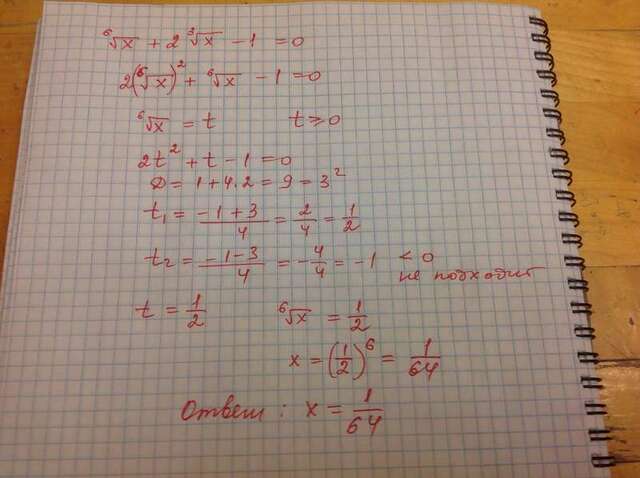 ⁶√x + 2 ³√x − 1 = 0
2(⁶√x)² + ⁶√x − 1 = 0
⁶√x = t t ≥ 0
2t² + t − 1 = 0
D = 1 + 4·2 = 9 = 3²
t₁ = (−1+3)/4 = 2/4 = 1/2
t₂ = (−1−3)/4 = −4/4 = −1 < 0
не подходит
t = 1/2 ⁶√x = 1/2
x = (1/2)⁶ = 1/64
Ответ: x = 1/64